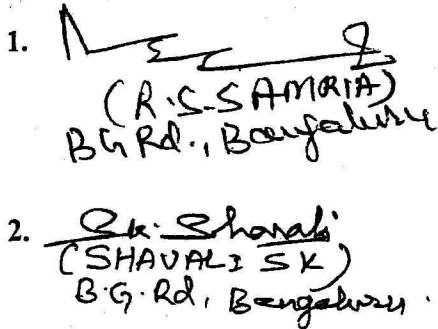 1.
(R.S. SAMRIA)
BG Rd., Bengaluru
2. Sk. Shavali
(SHAVALI SK)
B.G. Rd, Bengaluru.